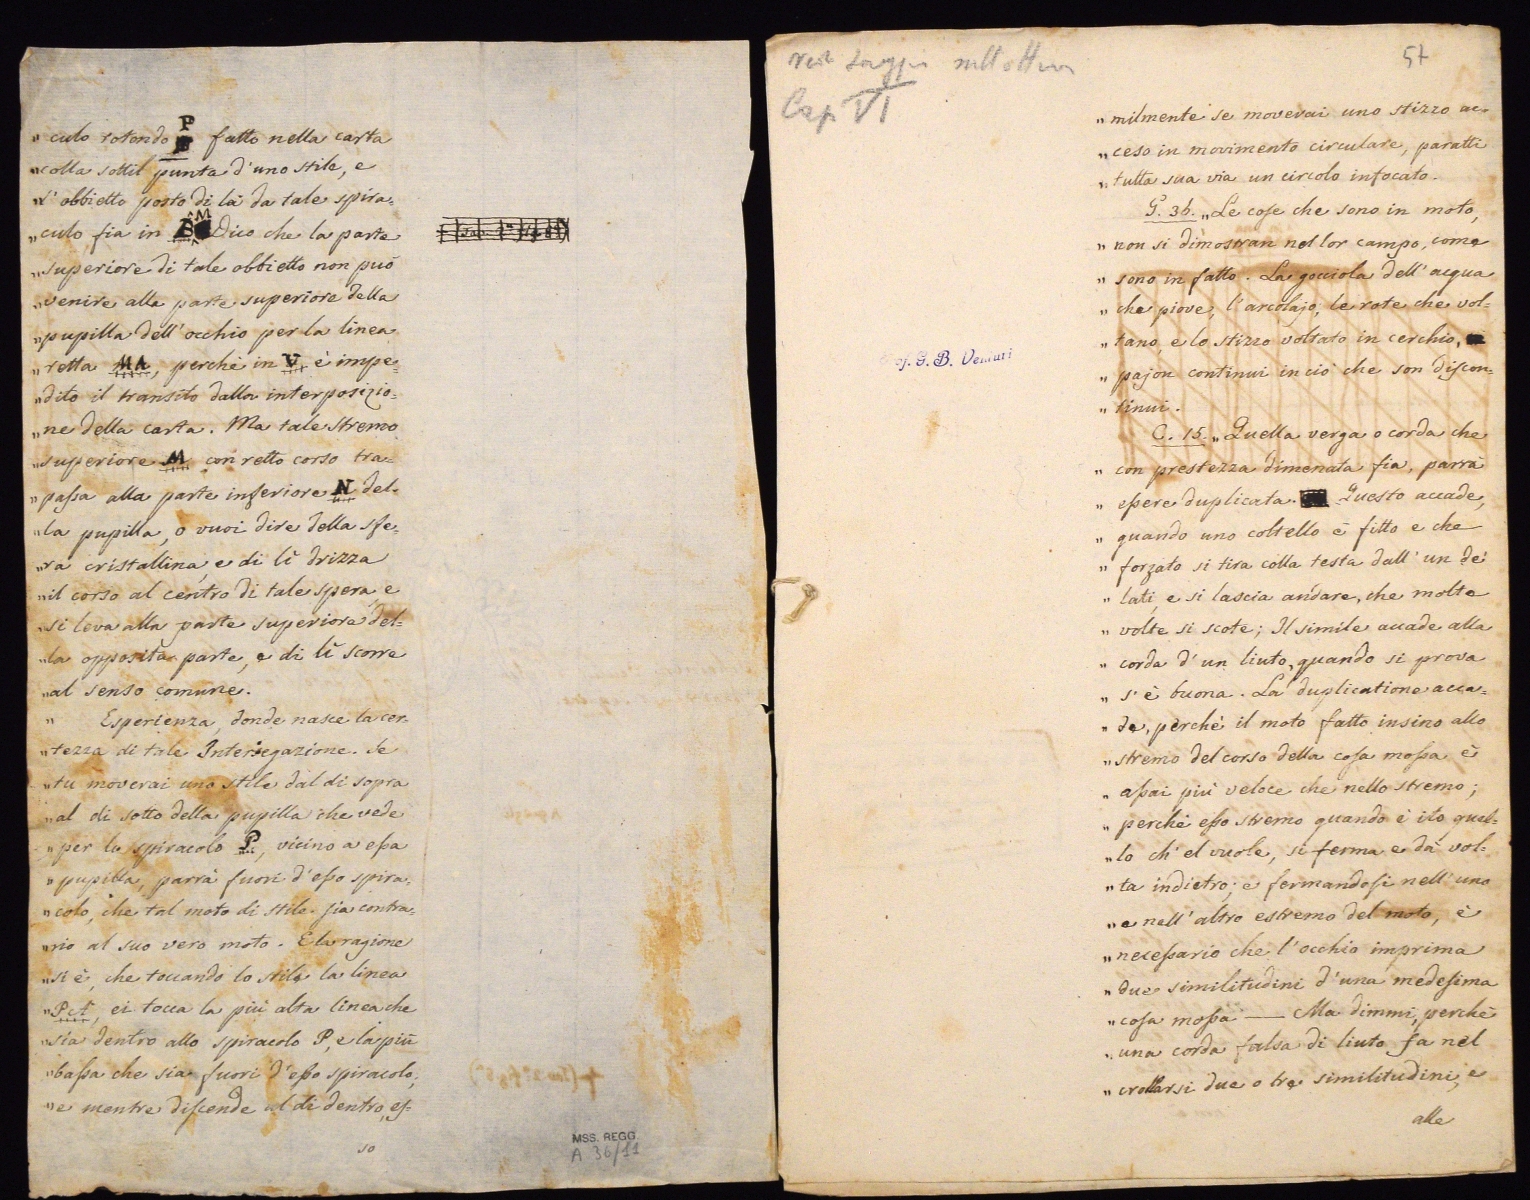 " culo rotondo P fatto nella carta
" colla sottil punta d'uno stile, e
" l'obbietto posto di là da tale spira-
" culo, fia in M Dico che la parte
" superiore di tale obbietto non può
" venire alla parte superiore della
" pupilla dell'occhio per la linea
" retta MA, perchè in V è impe-
" dito il transito dalla interposizio-
" ne della carta. Ma tale stremo
" superiore M con retto corso tra-
" passa alla parte inferiore N del-
" la pupilla, o vuoi dire della spe-
" ra cristallina, e di lì drizza
" il corso al centro di tale spera, e
" si leva alla parte superiore del-
" la opposita parte, e di lì scorre
" al senso comune.
" Esperienza, donde nasce la cer-
" tezza di tale Intersegazione. Se
" tu moverai uno stile dal di sopra
" al di sotto della pupilla che vede
" per lo spiracolo P, vicino a essa
" pupilla, parrà fuori d'esso spira-
" colo, che tal moto di stile sia contra-
" rio al suo vero moto. E la ragione
" si è, che toccando lo stile la linea
" ei tocca la più alta linea che
" sia dentro allo spiracolo P, e la più
" bassa che sia fuori d'esso spiracolo;
" e mentre discende al di dentro, es-
so
MSS. REGG.
A 36/11
Cap. VI
57
Prof. G. B. Venturi
" milmente se moverai uno stizzo ac-
" ceso in movimento circulare, paratti
" tutta sua via un circolo infocato.
G. 36. " Le cose che sono in moto,
" non si dimostran nel lor campo, come
" sono in fatto. La gocciola dell'acqua
" che piove, l'arcolajo, le rote che vol-
" tano, e lo stizzo voltato in cerchio,
" pajon continui in ciò che son discon-
" tinui.
C. 15. " Quella verga o corda che
" con prestezza dimenata fia, parrà
" essere duplicata. Questo accade,
" quando uno coltello è fitto e che
" forzato si tira colla testa dall'un de'
" lati, e si lascia andare, che molte
" volte si scote; Il simile accade alla
" corda d'un liuto, quando si prova
" s'è buona. La duplicatione acca-
" de, perchè il moto fatto insino allo
" stremo del corso della cosa mossa è
" assai più veloce che nello stremo;
" perchè esso stremo quando è ito quel-
" lo ch'el vuole, si ferma e dà vol-
" ta indietro; e fermandosi nell'uno
" e nell'altro estremo del moto, è
" necessario che l'occhio imprima
" due similitudini d'una medesima
" cosa mossa — Ma dimmi, perchè
" una corda falsa di liuto fa nel
" crollarsi due o tre similitudini, e
alle